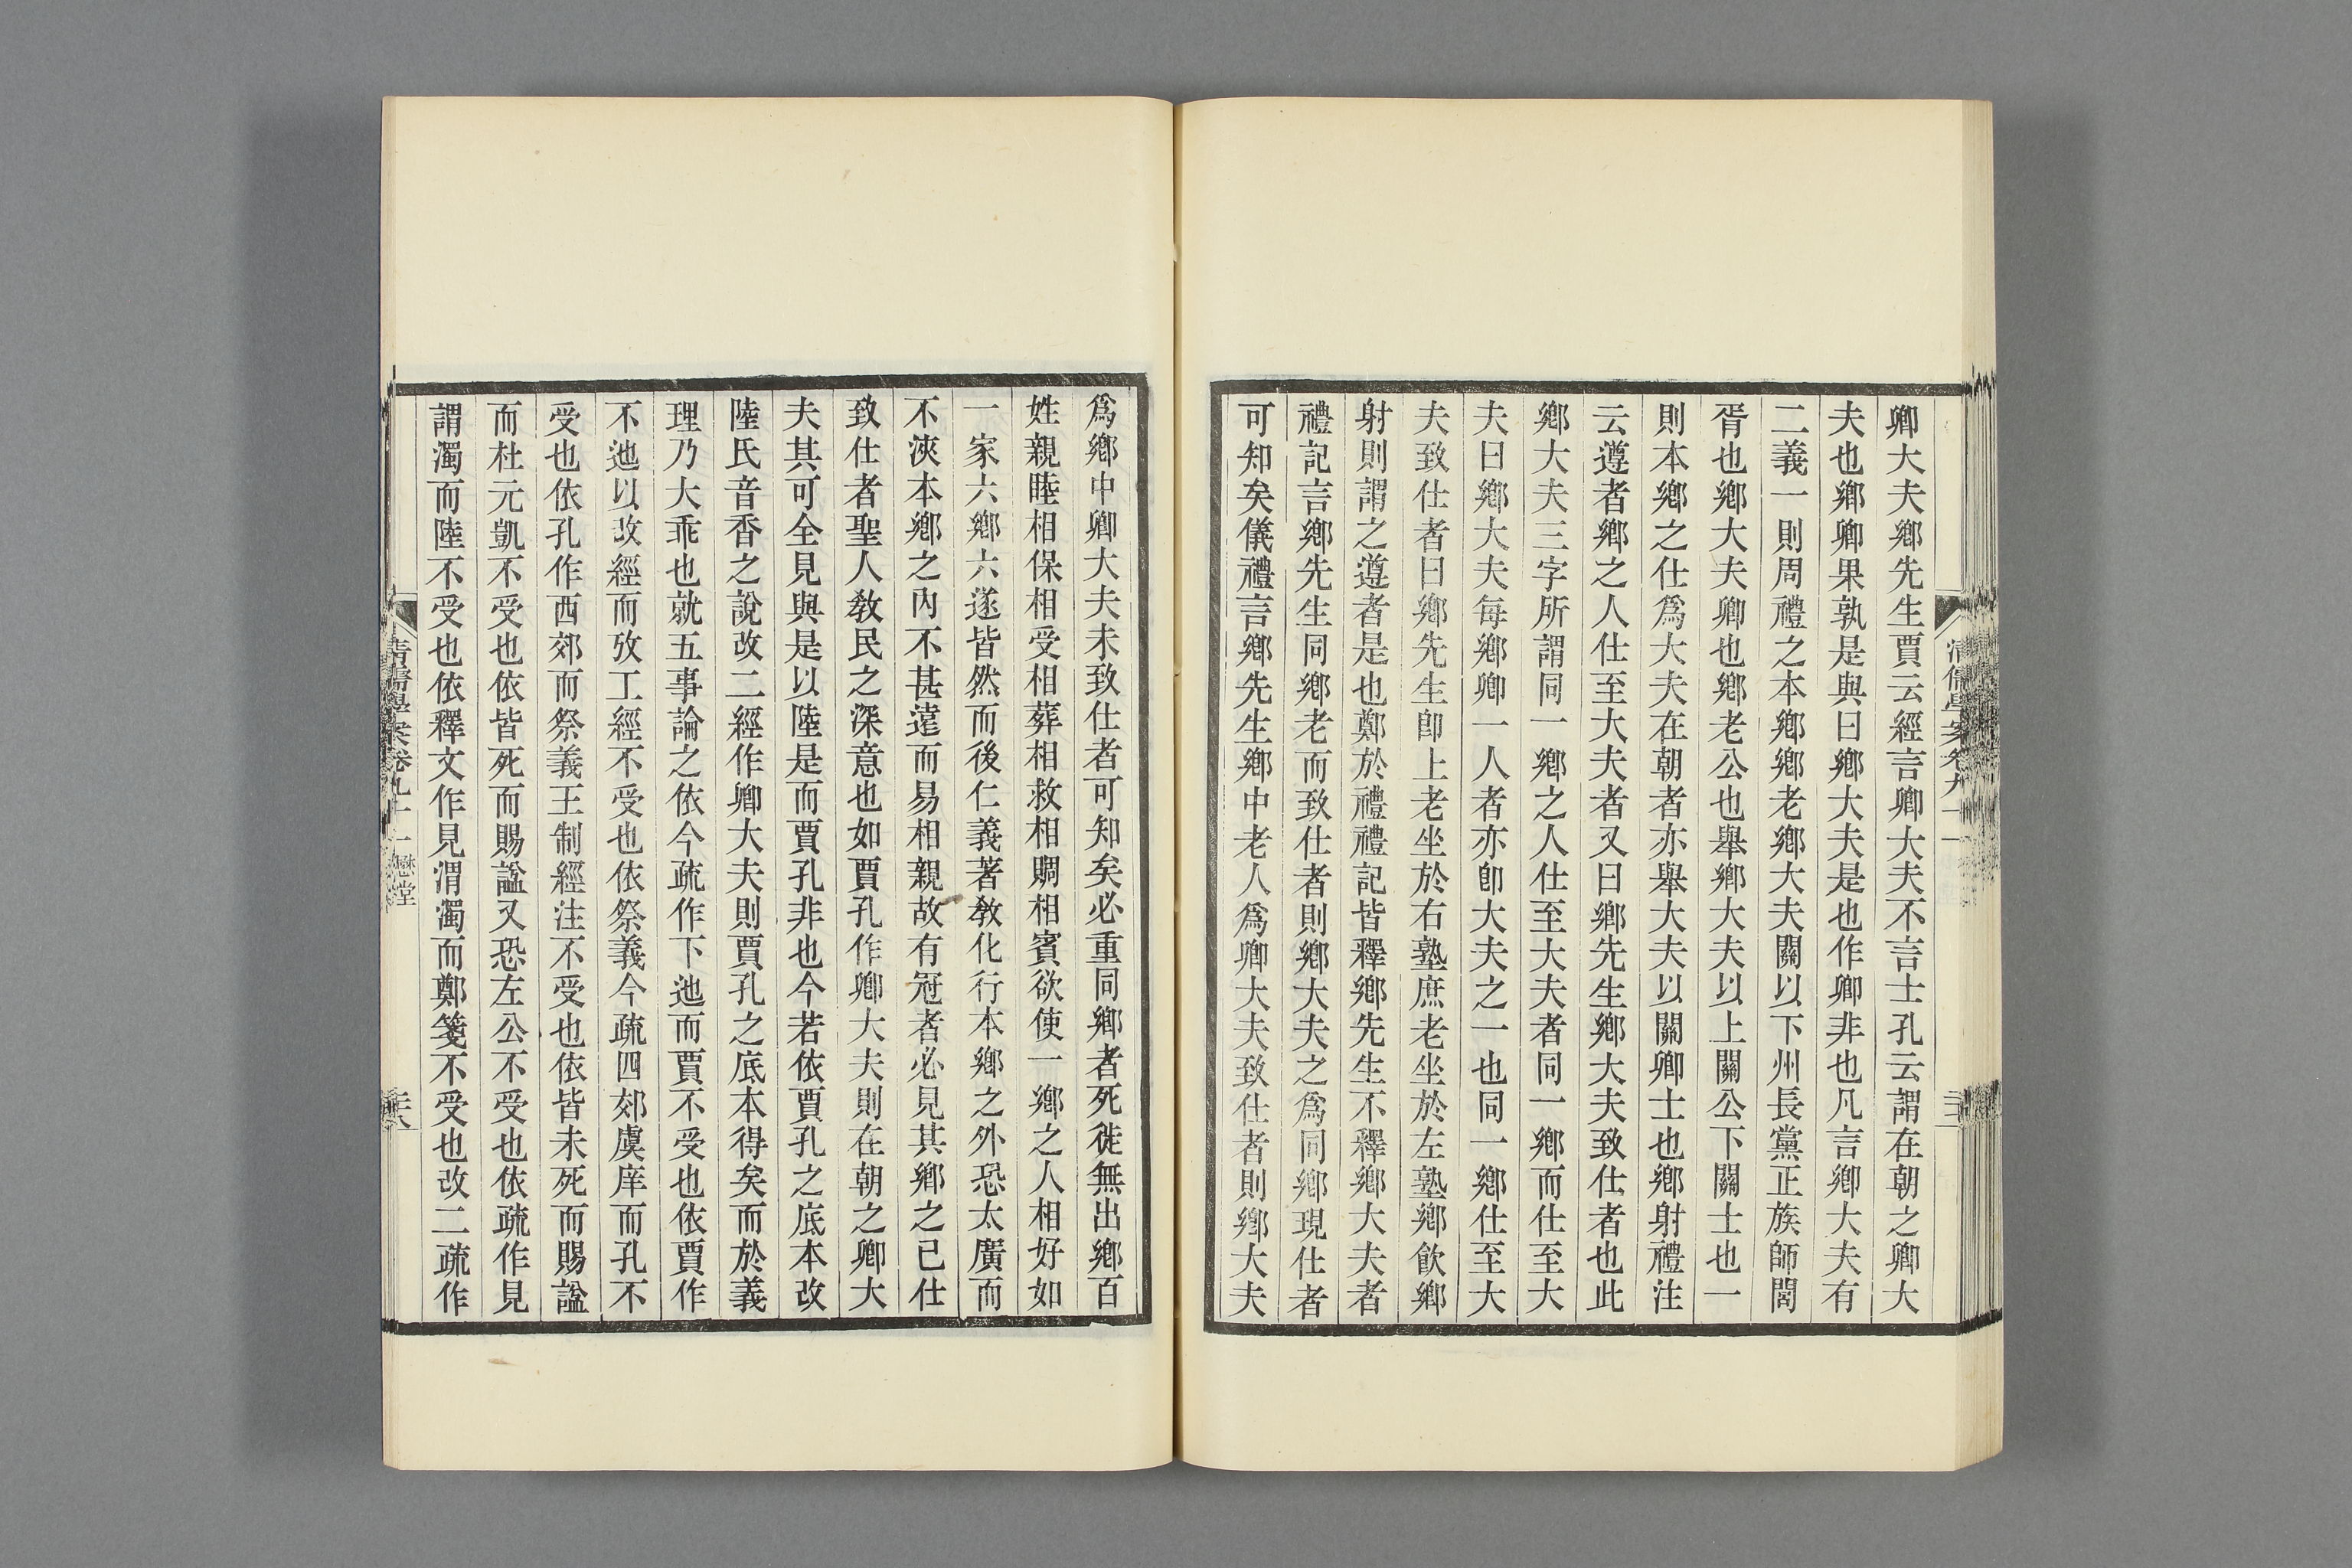 卿大夫鄉先生賈云經言卿大夫不言士孔云謂在朝之卿大
夫也鄉卿果孰是與曰鄉大夫是也作卿非也凡言鄉大夫有
二義一則周禮之本鄉鄉老鄉大夫關以下州長黨正族師閭
胥也鄉大夫卿也鄉老公也舉鄉大夫以上關公下關士也一
則本鄉之仕爲大夫在朝者亦舉大夫以關卿士也鄉射禮注
云遵者鄉之人仕至大夫者又曰鄉先生鄉大夫致仕者也此
鄉大夫三字所謂同一鄉之人仕至大夫者同一鄉而仕至大
夫曰鄉大夫每鄉卿一人者亦卽大夫之一也同一鄉仕至大
夫致仕者曰鄉先生卽上老坐於右塾庶老坐於左塾鄉飲鄉
射則謂之遵者是也鄭於禮禮記皆釋鄉先生不釋鄉大夫者
禮記言鄉先生同鄉老而致仕者則鄉大夫之爲同鄉現仕者
可知矣儀禮言鄉先生鄉中老人爲卿大夫致仕者則鄉大夫
爲鄉中卿大夫未致仕者可知矣必重同鄉者死徙無出鄉百
姓親睦相保相受相葬相救相賙相賓欲使一鄉之人相好如
一家六鄉六遂皆然而後仁義著敎化行本鄉之外恐太廣而
不浹本鄉之內不甚遠而易相親故有冠者必見其鄉之已仕
致仕者聖人敎民之深意也如賈孔作卿大夫則在朝之卿大
夫其可全見與是以陸是而賈孔非也今若依賈孔之底本改
陸氏音香之說改二經作卿大夫則賈孔之底本得矣而於義
理乃大乖也就五事論之依今疏作下迆而賈不受也依賈作
不迆以改經而攷工經不受也依祭義今疏四郊虞庠而孔不
受也依孔作西郊而祭義王制經注不受也依皆未死而賜諡
而杜元凱不受也依皆死而賜諡又恐左公不受也依疏作見
謂濁而陸不受也依釋文作見渭濁而鄭箋不受也改二疏作